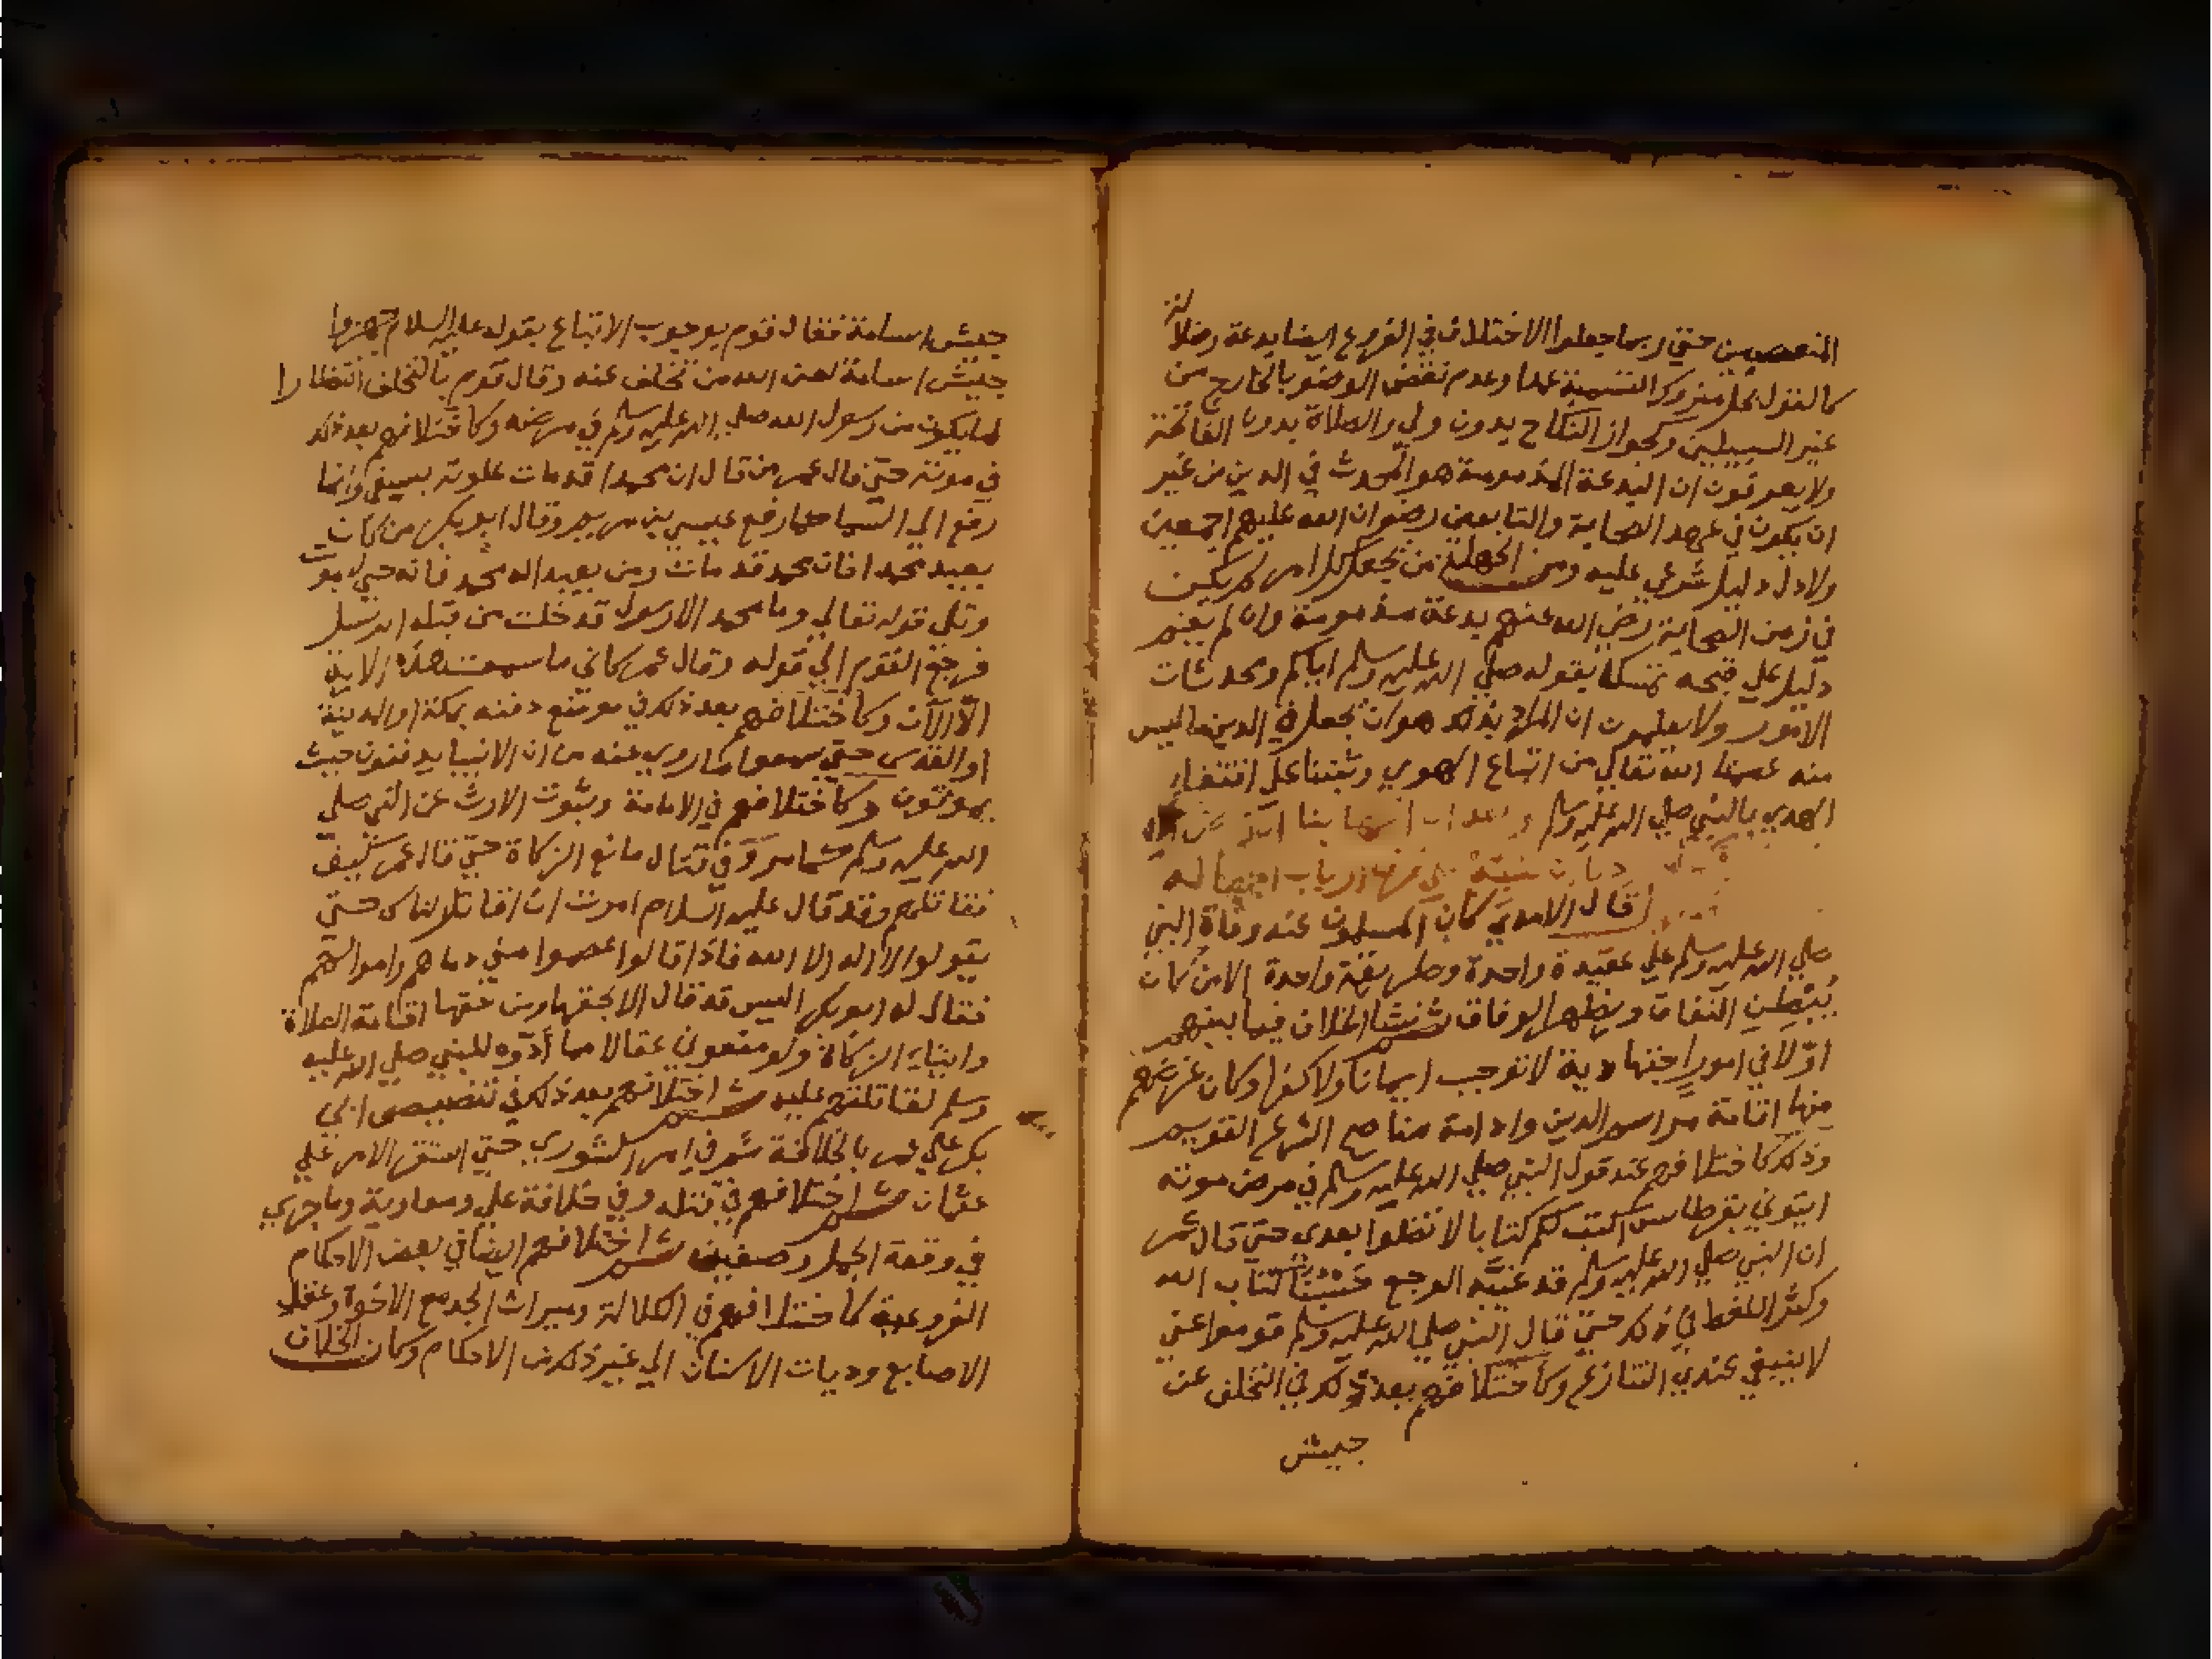 المتعصبين حتي ربما جعلوا الاختلاف في الفروع ايضا بدعة وضلالة
كالقول بحل متروك التسمية عمدا وعدم نقض الوضو بالخارج من
غير السبيلين وكجواز النكاح بدون ولي والصلاة بدون الفاتحة
ولا يعرفون ان البدعة المذمومة هو المحدث في الدين من غير
ان يكون في عهد الصحابة والتابعين رضوان الله عليهم اجمعين
ولا دل دليل شرعي عليه ومن الجهلة من يجعل كل امر لم يكن
في زمن الصحابة رضي الله عنهم بدعة مذمومة وان لم يقم
دليل علي قبحه تمسكا بقوله صلي الله عليه وسلم اياكم ومحدثات
الامور ولا يعلمون ان المراد بذلك هو ان يجعل في الدين ما ليس
منه عصمنا الله تعالي من اتباع الهوي وثبتنا علي اقتفاء
الهدي بالنبي صلي الله عليه وسلم
قال الامدي كان المسلمون عند وفاة النبي
صلي الله عليه وسلم علي عقيدة واحدة وطريقة واحدة الا من كان
يُبْطِن النفاق ويظهر الوفاق ثم نشا الخلاف فيما بينهم
اوّلا في امور اجتهادية لا توجب ايمانا ولا كفرا وكان غرضهم
منها اقامة مراسم الدين وادامة مناهج الشرع القويم
وذلك كاختلافهم عند قول النبي صلي الله عليه وسلم في مرض موته
ايتوني بقرطاس اكتب لكم كتابا لا تضلوا بعدي حتي قال عمر
ان النبي صلي الله عليه وسلم قد غلبه الوجع حسبنا كتاب الله
وكثر اللغط في ذلك حتي قال النبي صلي الله عليه وسلم قوموا عني
لا ينبغي عندي التنازع وكاختلافهم بعد ذلك في التخلف عن
جيش
جيش اسامة فقال قوم بوجوب الاتباع بقوله عليه السلام جهزوا
جيش اسامة لعن الله من تخلف عنه وقال قوم بالتخلف انتظارا
لما يكون من رسول الله صلي الله عليه وسلم في مرضه وكاختلافهم بعد ذلك
في موته حتي قال عمر من قال ان محمدا قد مات علوته بسيفي وانما
رفع الي السما كما رفع عيسي بن مريم وقال ابو بكر من كان
يعبد محمدا فان محمد قد مات ومن يعبد اله محمد فانه حي لا يموت
وتلي قوله تعالي وما محمد الا رسول قد خلت من قبله الرسل
فرجع القوم الي قوله وقال عمر كاني ما سمعت هذه الاية
الّا الآن وكاختلافهم بعد ذلك في موضع دفنه بمكة او المدينة
او القدس حتي سمعوا ما روي عنه من ان الانبيا يدفنون حيث
يموتون وكاختلافهم في الامامة وثبوت الارث عن النبي صلي
الله عليه وسلم كما مر وفي قتال مانع الزكاة حتي قال عمر كيف
نقاتلهم وقد قال عليه السلام امرت ان اقاتل الناس حتي
يقولوا لا اله الا الله فاذا قالوا عصموا مني دماهم واموالهم
فقال له ابو بكر اليس قد قال الا بحقها ومن حقها اقامة الصلاة
وايتاء الزكاة ولو منعوني عقالا مما أدّوه للنبي صلي الله عليه
وسلم لقاتلتهم عليه ثم اختلافهم بعد ذلك في تنصيص ابي
بكر علي عمر بالخلافة ثم في امر الشوري حتي استقر الامر علي
عثمان ثم اختلافهم في قتله وفي خلافة علي ومعاوية وما جري
في وقعة الجمل وصفين ثم اختلافهم ايضا في بعض الاحكام
الفروعية كاختلافهم في الكلالة وميراث الجد مع الاخوة وعقل
الاصابع وديات الاسنان الي غير ذلك من الاحكام وكان الخلاف